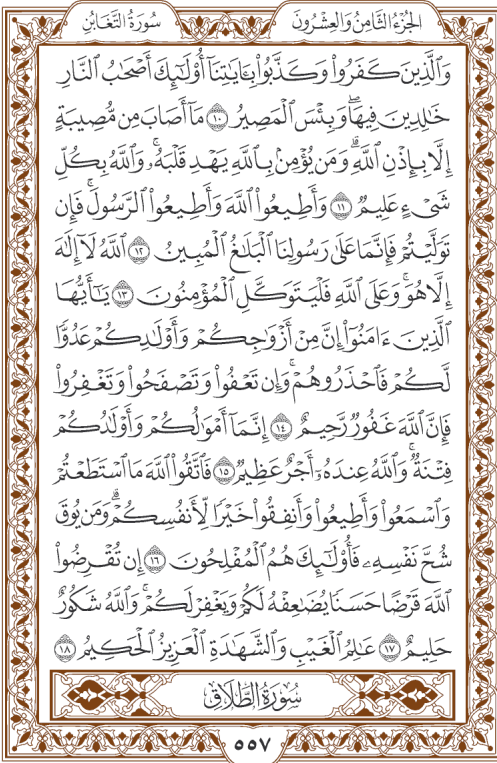 سُورَةُ التَّغَابُنِ الجُزْءُ الثَّامِنُ وَالعِشْرُونَ
وَٱلَّذِينَ كَفَرُوا۟ وَكَذَّبُوا۟ بِـَٔايَـٰتِنَآ أُو۟لَـٰٓئِكَ أَصْحَـٰبُ ٱلنَّارِ
خَـٰلِدِينَ فِيهَا ۖ وَبِئْسَ ٱلْمَصِيرُ ١٠ مَآ أَصَابَ مِن مُّصِيبَةٍ
إِلَّا بِإِذْنِ ٱللَّهِ ۗ وَمَن يُؤْمِنۢ بِٱللَّهِ يَهْدِ قَلْبَهُۥ ۚ وَٱللَّهُ بِكُلِّ
شَىْءٍ عَلِيمٌ ١١ وَأَطِيعُوا۟ ٱللَّهَ وَأَطِيعُوا۟ ٱلرَّسُولَ ۚ فَإِن
تَوَلَّيْتُمْ فَإِنَّمَا عَلَىٰ رَسُولِنَا ٱلْبَلَـٰغُ ٱلْمُبِينُ ١٢ ٱللَّهُ لَآ إِلَـٰهَ
إِلَّا هُوَ ۚ وَعَلَى ٱللَّهِ فَلْيَتَوَكَّلِ ٱلْمُؤْمِنُونَ ١٣ يَـٰٓأَيُّهَا
ٱلَّذِينَ ءَامَنُوٓا۟ إِنَّ مِنْ أَزْوَٰجِكُمْ وَأَوْلَـٰدِكُمْ عَدُوًّا
لَّكُمْ فَٱحْذَرُوهُمْ ۚ وَإِن تَعْفُوا۟ وَتَصْفَحُوا۟ وَتَغْفِرُوا۟
فَإِنَّ ٱللَّهَ غَفُورٌ رَّحِيمٌ ١٤ إِنَّمَآ أَمْوَٰلُكُمْ وَأَوْلَـٰدُكُمْ
فِتْنَةٌ ۚ وَٱللَّهُ عِندَهُۥٓ أَجْرٌ عَظِيمٌ ١٥ فَٱتَّقُوا۟ ٱللَّهَ مَا ٱسْتَطَعْتُمْ
وَٱسْمَعُوا۟ وَأَطِيعُوا۟ وَأَنفِقُوا۟ خَيْرًا لِّأَنفُسِكُمْ ۗ وَمَن يُوقَ
شُحَّ نَفْسِهِۦ فَأُو۟لَـٰٓئِكَ هُمُ ٱلْمُفْلِحُونَ ١٦ إِن تُقْرِضُوا۟
ٱللَّهَ قَرْضًا حَسَنًا يُضَـٰعِفْهُ لَكُمْ وَيَغْفِرْ لَكُمْ ۚ وَٱللَّهُ شَكُورٌ
حَلِيمٌ ١٧ عَـٰلِمُ ٱلْغَيْبِ وَٱلشَّهَـٰدَةِ ٱلْعَزِيزُ ٱلْحَكِيمُ ١٨
سُورَةُ الطَّلَاقِ
٥٥٧